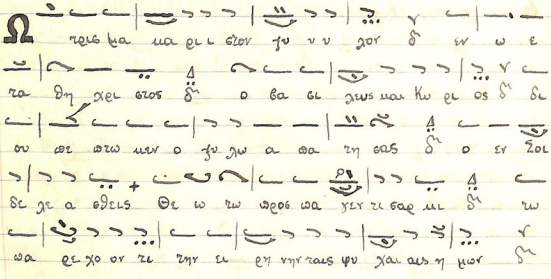 Ω τρισ μα κα ρι ι στον ξυ υ υ λον εν ω ε
τα θη χρι στος ο βα σι λευς και Κυ ρι ος δι
ου πε πτω κεν ο ξυ λω α πα τη σας ο εν Σοι
δε λε α σθεις Θε ω τω προσ πα γεν τι σαρ κι τω
πα ρε χο ον τι την ει ρη νην ταις ψυ χαι αις η μων